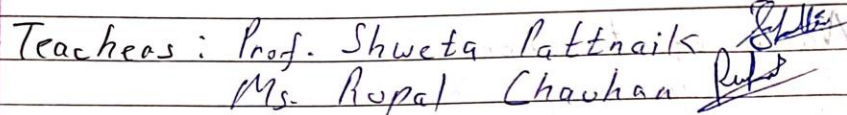 Teachers : Prof. Shweta Pattnaik
Ms. Rupal Chauhan